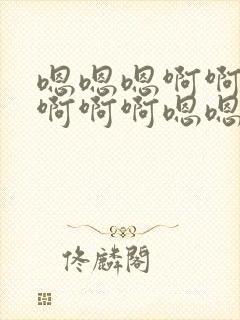 嗯嗯嗯啊啊
啊啊啊嗯嗯
佟麟阁